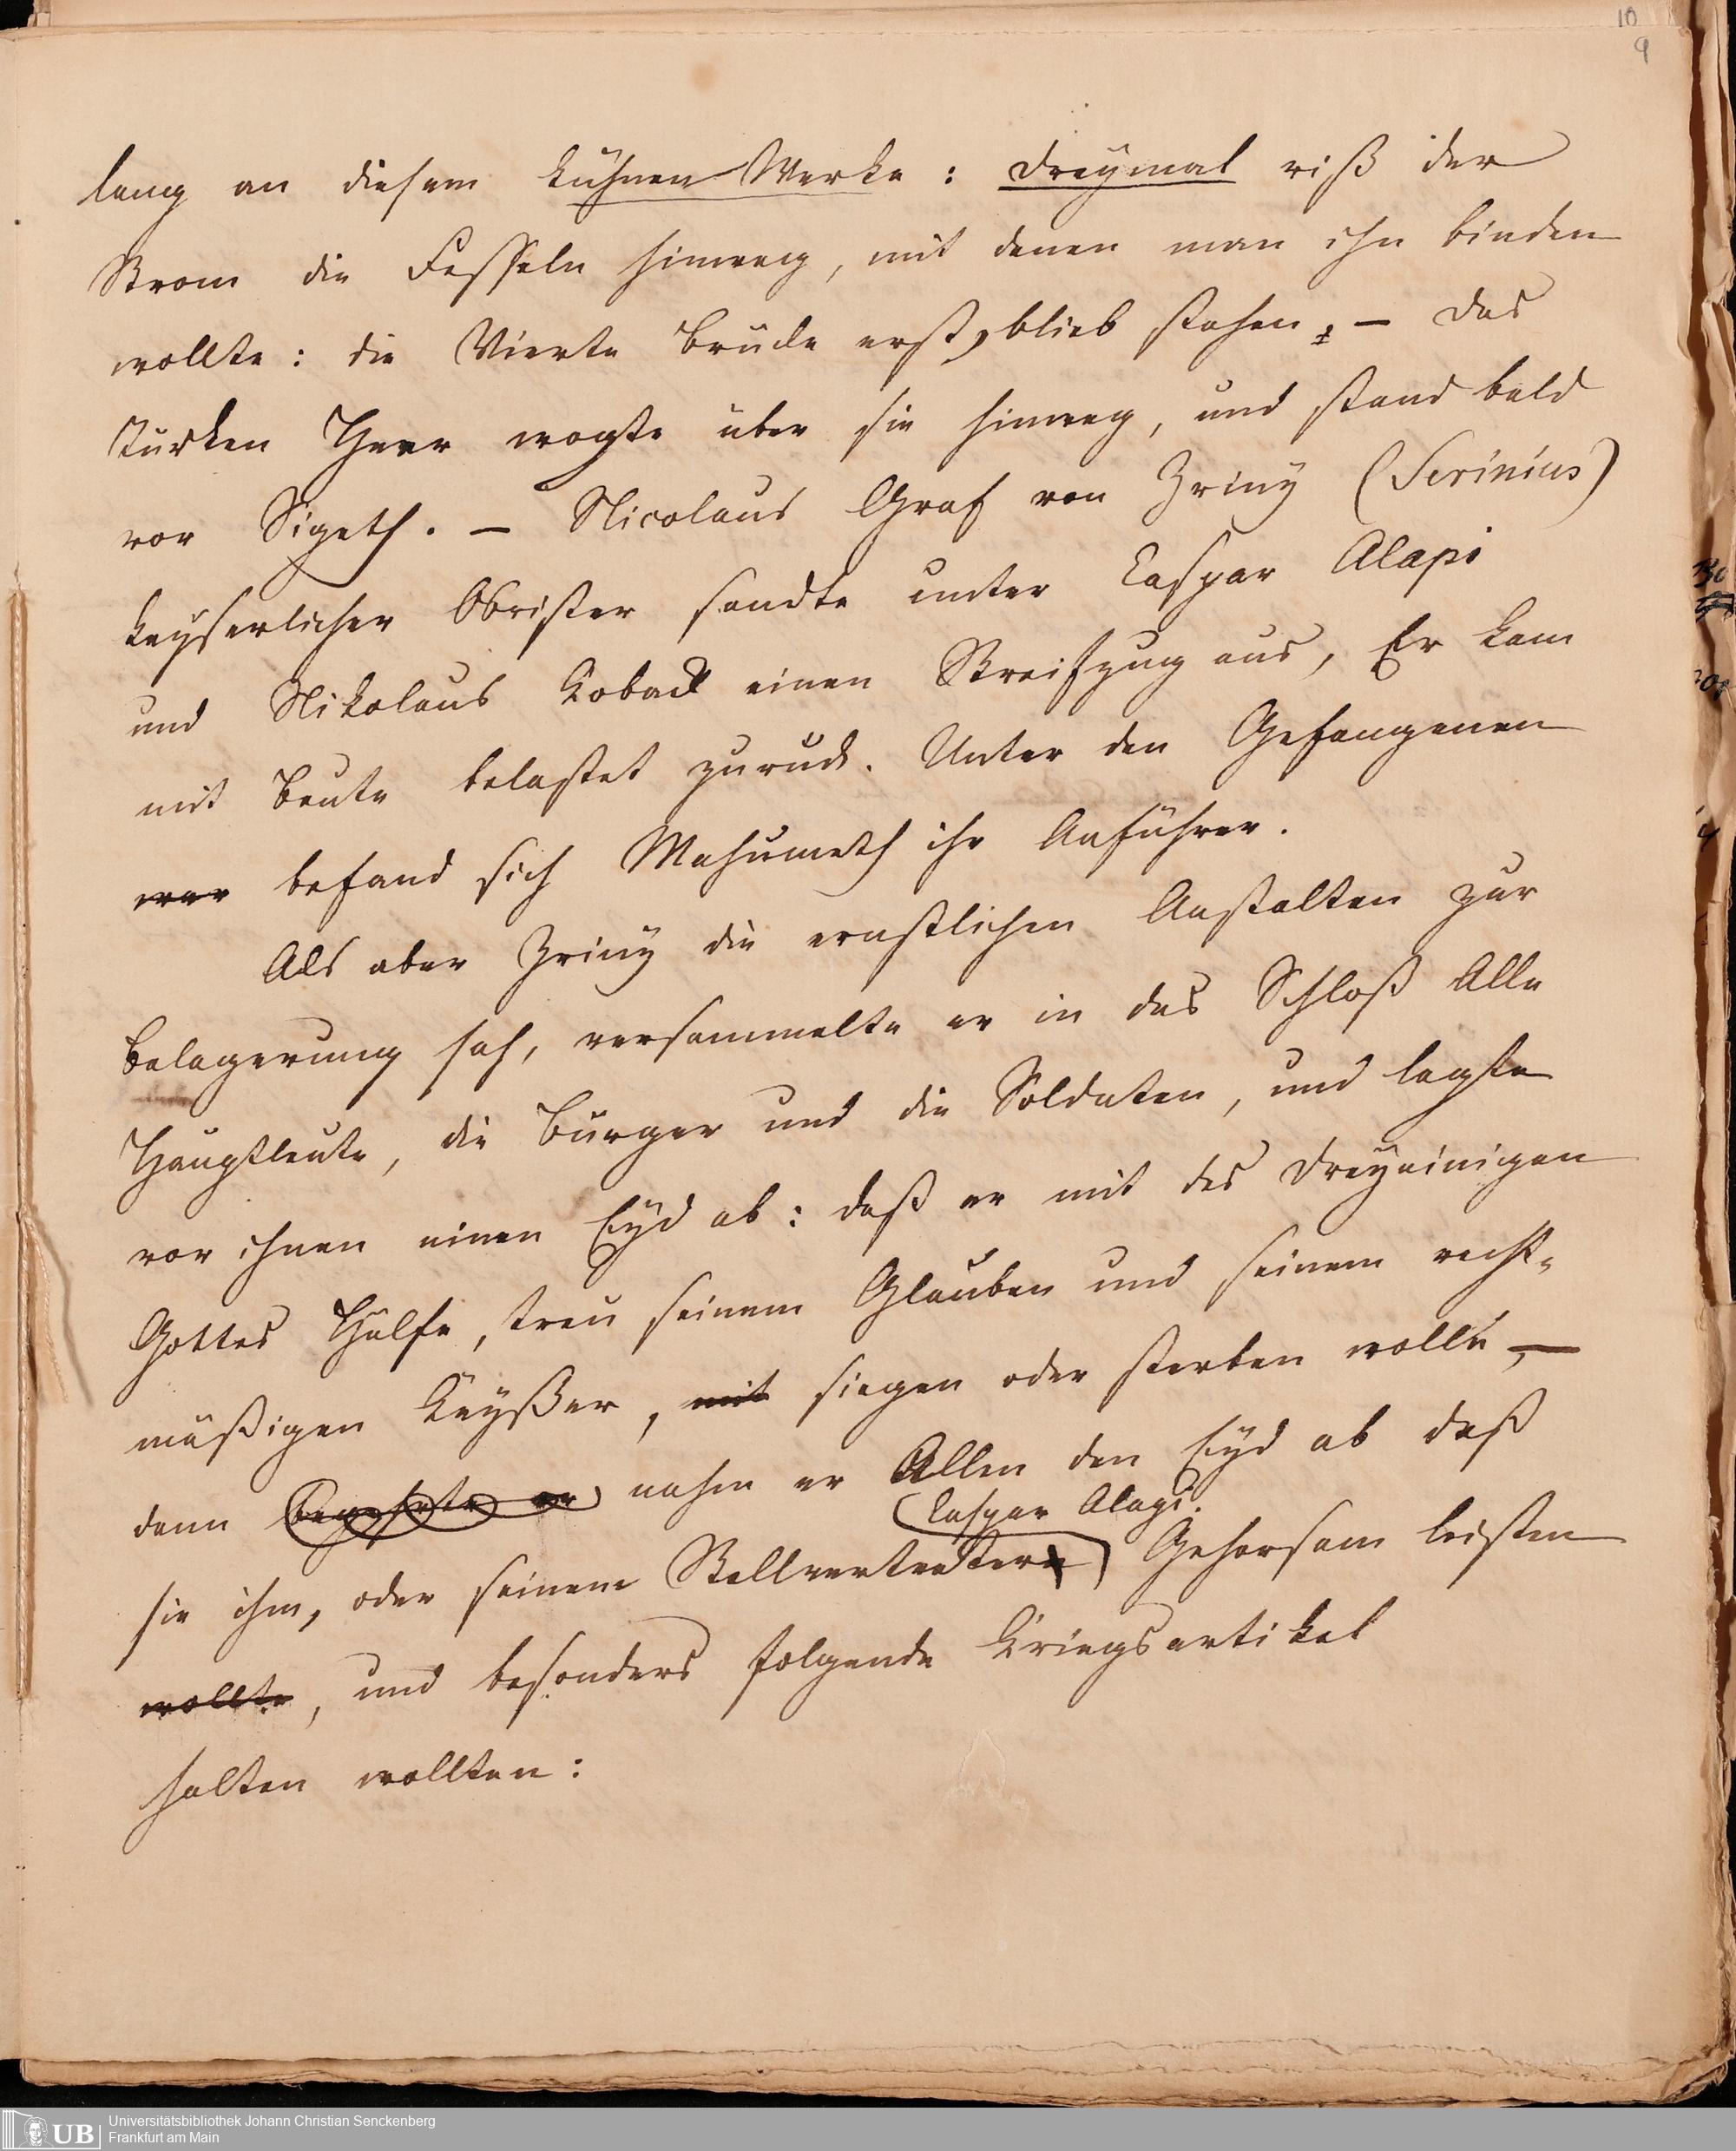 10
9
lang an diesem kühnen Werke : dreymal riß der
Strom die Fesseln hinweg, mit denen man ihn binden
wollte : die Vierte Brücke erst, blieb stehen. – Das
Türken Heer wogte über sie hinweg, und stand bald
vor Sigeth. – Nicolaus Graf von Zriny (Serinius)
keyserlicher Obrister sandte unter Caspar Alapi
und Nikolaus Koback einen Streifzug aus, Er kam
mit Beute belastet zurück. Unter den Gefangenen
war befand sich Mahumeth ihr Anführer.
Als aber Zriny die ernstlichen Anstalten zur
Belagerung sah, versammelte er in das Schloß Alle
Hauptleute, die Bürger und die Soldaten, und legte
vor ihnen einen Eyd ab : daß er mit des dreyeinigen
Gottes Hülfe, treu seinem Glauben und seinem recht-
mäßigen Keyßer, mit siegen oder sterben wolle, –
dann begehrte er nahm er Allen den Eyd ab daß
Caspar Alapi.
sie ihm, oder seinem Stellvertreter Gehorsam leisten
wollte, und besonders folgende Kriegsartikel
halten wollten :
UB
Universitätsbibliothek Johann Christian Senckenberg
Frankfurt am Main